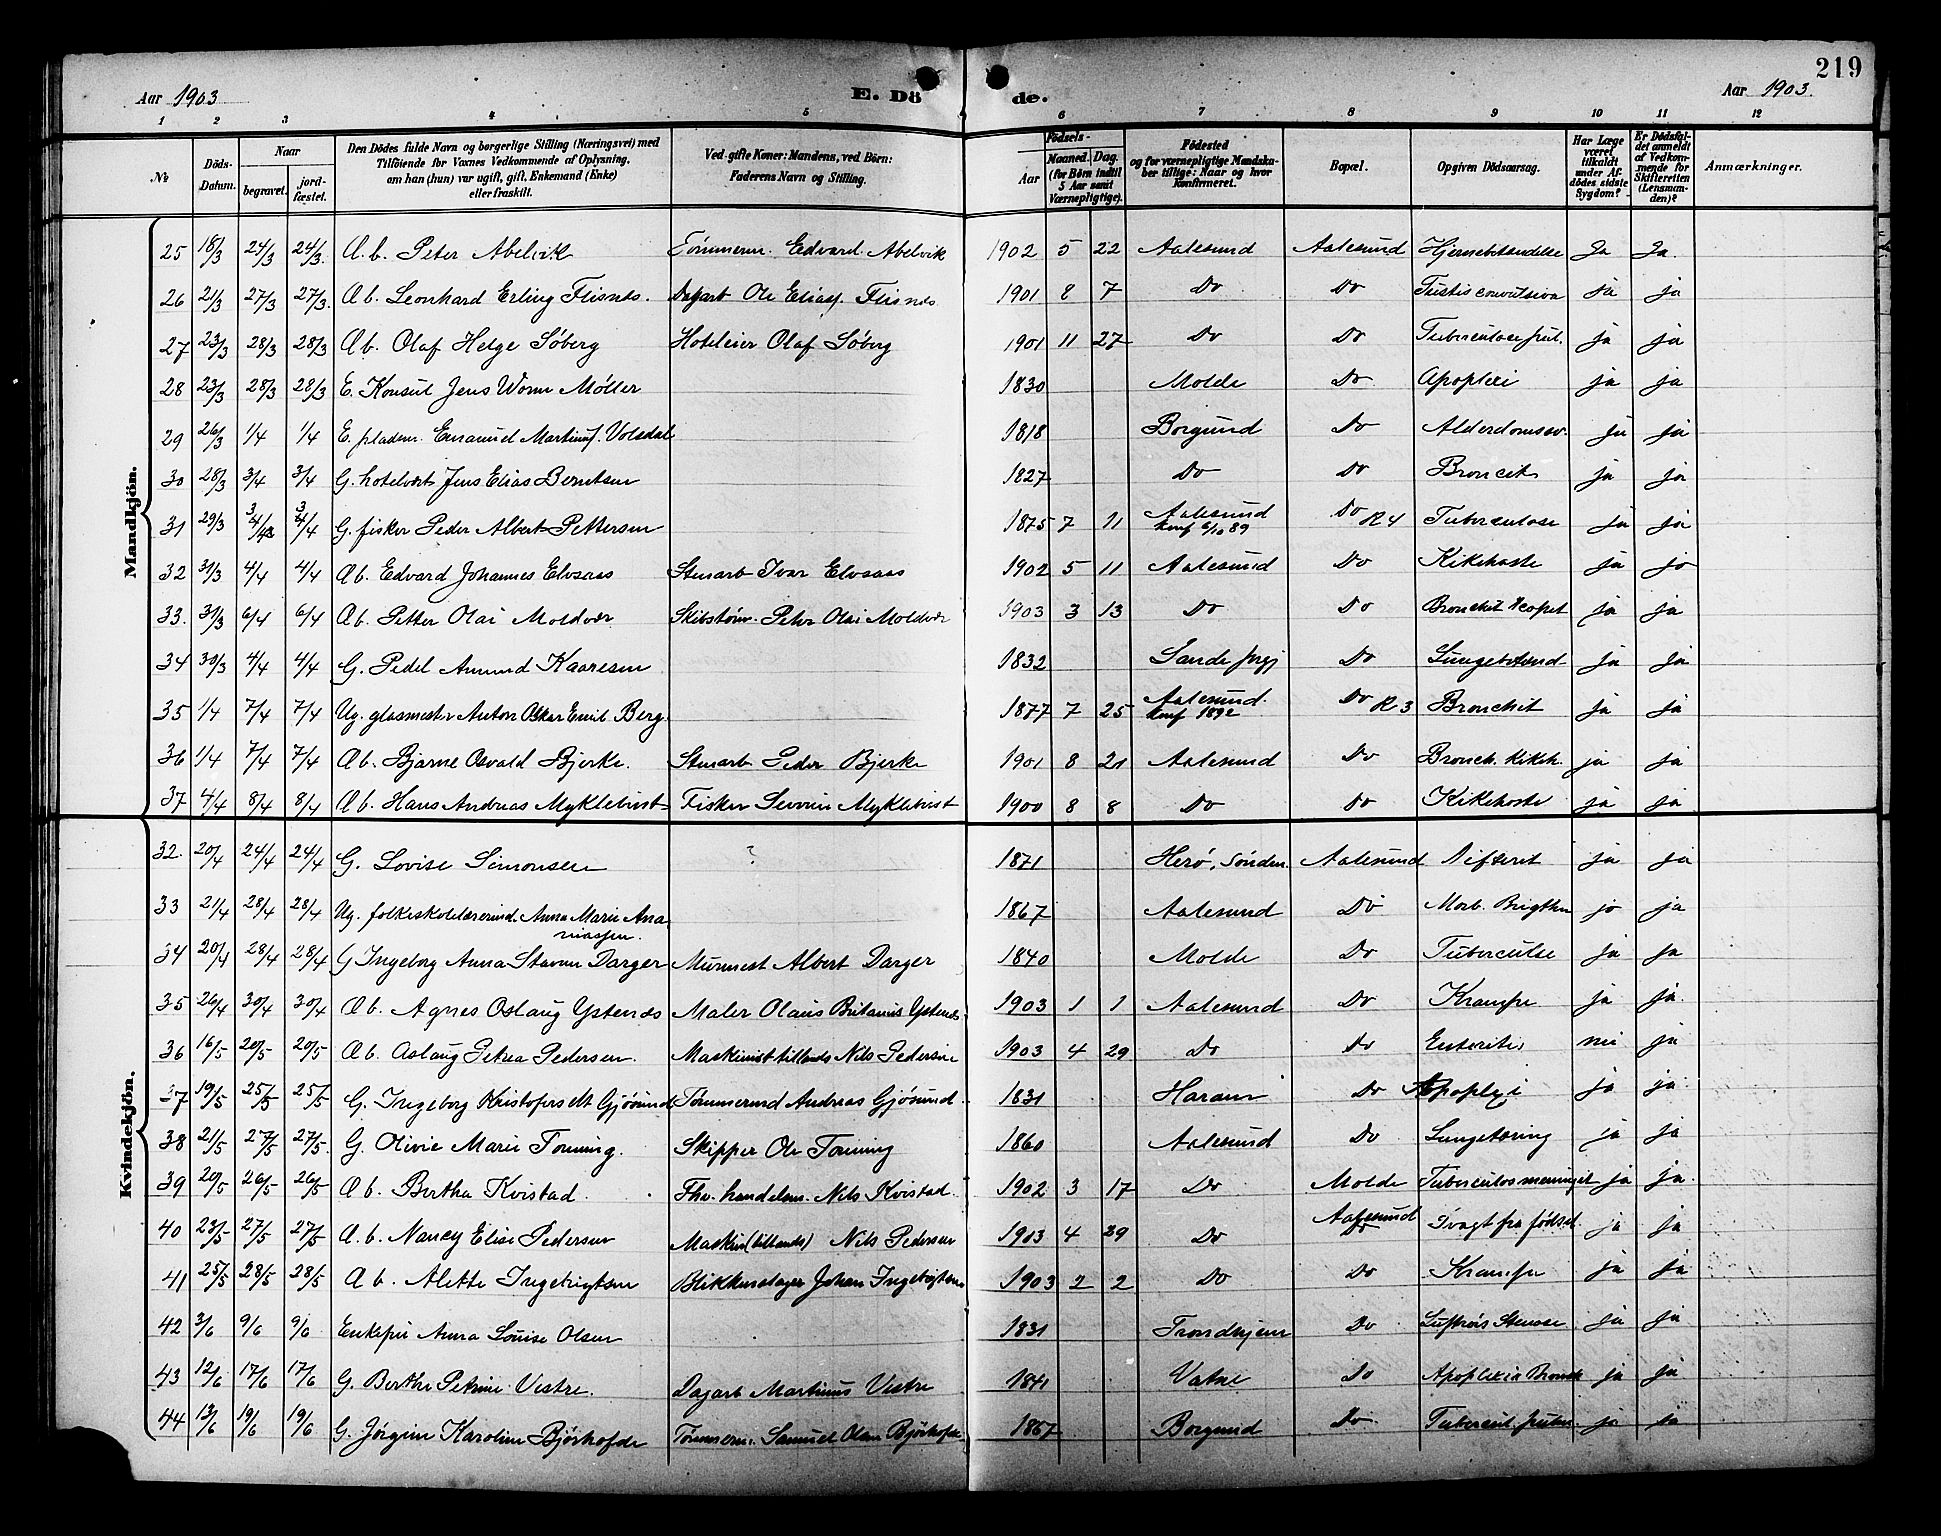 219
Aar 1903 E. Dö de. Aar 1903.
1 2 3 4 5 6 7 8 9 10 11 12
№ Döds-Datum. Naar begravet. jord-fæstet. Den Dödes fulde Navn og borgerlige Stilling (Næringsvei) med Tilföiende for Voxnes Vedkommende af Oplysning, om han (hun) var ugift, gift, Enkemand (Enke) eller fraskilt. Ved gifte Koner: Mandens, ved Börn: Faderens Navn og Stilling. Födsels- Aar Maaned. Dag. (for Börn indtil 5 Aar samt Værnepligtige). Födested og for værnepligtige Mandska-ber tillige: Naar og hvor Konfirmeret. Bopæl. Opgiven Dödsaarsag. Har Læge været tilkaldt under Af-dödes sidste Sygdom? Er Dödsfal-det anmeldt af Vedkom-mende for Skifteretten (Lensman-den)? Anmærkninger.
Mandkjön.
25 18/3 24/3 24/3. Æ. b. Peter Abelvik Tømmerm. Edvard Abelvik 1902 5 22 Aalesund Aalesund Hjernebetændelse Ja Ja.
26 21/3 27/3 27/3. Æb. Leonhard Erling Flisnes. Dagarb Ole Eliass. Flisnes 1901 8 7 Do Do Tussis convulsiva ja ja
27 23/3 28/3 28/3 Æb. Olaf Helge Søberg Hoteleier Olaf Søberg 1901 11 27 Do Do Tuberculose ja ja
28 23/3 28/3 28/3 E. Konsul Jens Worm Møller 1830 Molde Do Apoplexi ja ja
29 26/3 1/4 1/4 E. pladsm. Emanuel Martinus. Volsdal 1818 Borgund Do Alderdomssv. ja ja
30 28/3 3/4 3/4 G. hotelvært Jens Elias Berntsen 1827 Do Do Broncit ja ja
31 29/3 3/4 3/4 G. fisker Peder Albert Pettersen 1875 7 11 Aalesund Konf 6/10 89 Do R 4 Tuberculose ja ja
32 31/3 4/4 4/4 Æb. Edvard Johannes Elvsaas Stenarb Ivar Elvsaas 1902 5 11 Aalesund Do Kikehoste ja ja
33. 31/3 6/4 6/4 Æb. Petter Olai Moldvær Skibstøm. Peter Olai Moldvær 1903 3 13 Do Do Bronchit ja ja
34 30/3 4/4 4/4 G. Pedel Amund Kaaresen 1832 Sande Do Lungebetænd ja ja
35 1/4 7/4 7/4 Ug. glasmester Anton Oskar Emil Berg. 1877 7 25 Aalesund. Konf 1892 Do R 3 Bronchit ja ja
36 1/4 7/4 7/4 Æb. Bjarne Osvald Bjerke. Stenarb Peder Bjerke 1901 8 21 Aalesund Do Bronch. Kikh. ja ja
37 4/4 8/4 8/4 Æb. Hans Andreas Myklebust Fisker Severin Myklebust 1900 8 8 Do Do Kikehoste ja ja
Kvindekjön.
32. 20/4 24/4 24/4 G. Lovise Simonsen ? 1871 Herø, Søndm. Aalesund Difterit ja ja
33 21/4 28/4 28/4 Ug. folkeskolelærerind Anna Marie Ana-
niassen. 1867 Aalesund Do Morb. Brigthii ja ja
34 20/4 28/4 28/4 G Ingeborg Anna Staver Darger Murmest Albert Darger 1840 Molde Do Tuberculse ja ja
35 26/4 30/4 30/4 Æb. Agnes Oslaug Ystenes Maler Olaus Britanus Ystenes 1903 1 1 Aalesund Do Krampe ja ja.
36 16/5 20/5 20/5 Æb. Aslaug Petra Pedersen. Maskinist tillands Nils Pedersen 1903 4 29 Do Do Enterites nei ja
37 19/5 25/5 25/5 G. Ingeborg Kristofersdt Gjøsund Tømmermd Andreas Gjøsund. 1831 Haram Do Apoplexi ja ja.
38 21/5 27/5 27/5. G. Olivie Marie Tonning. Skipper Ole Tonning 1860 Aalesund Do Lungetæring ja ja
39 20/5 26/5 26/5 Æb. Bertha Kvistad. Fhv. handelsm. Nils Kvistad. 1902 3 17 Do Molde Tuberculos meningit ja ja.
40 23/5 27/5 27/5 Æ. b. Nancy Elise Pedersen Maskin (tillands) Nils Pedersen 1903 4 29 Do Aalesund Svagt fra fødsel ja ja
41 25/5 28/5 28/5 Æb. Alette Ingebrigtsen Blikkenslager Johan Ingebrigtsen 1903 2 2 Do Do Krampe ja ja
42 3/6 9/6 9/6 Enkefru Anna Louise Olsen 1831 Trondhjem Do Luftrørs Stenose ja ja
43 12/6 17/6 17/6 G. Berthe Petrine Vestre. Dagarb Martinus Vestre 1841 Vatne Do Apoplexia Bronch ja ja
44 13/6 19/6 19/6 G. Jørgine Karoline Bjørkofde Tømmerm. Samuel Olsen Bjørkofde 1867 Borgund Do Tubercul. pulm. ja ja